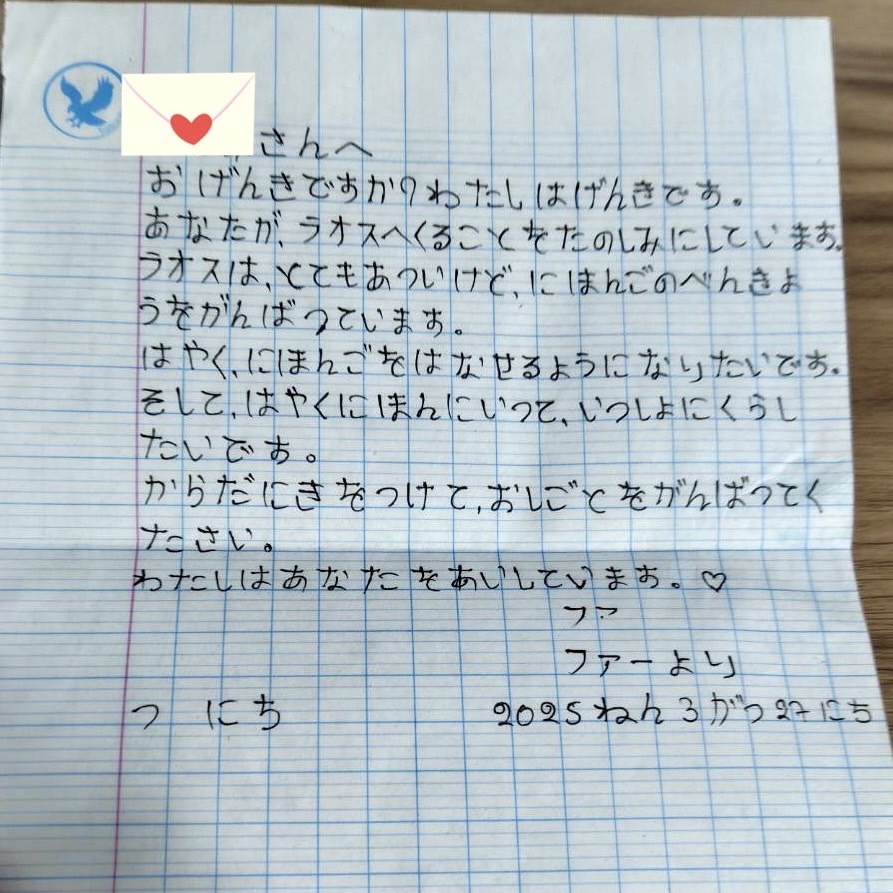 さんへ
おげんきですか?わたしはげんきです。
あなたが、ラオスへくることをたのしみにしています。
ラオスは、とてもあついけど、にほんごのべんきよ
うをがんばつています。
はやく、にほんごをはなせるようになりたいです。
そして、はやくにほんにいつて、いつしよにくらし
たいです。
からだにきをつけて、おしごとをがんばつてく
ださい。
わたしはあなたをあいしています。♡
ファ
ファーより
つ にち 2025ねん3がつ27にち